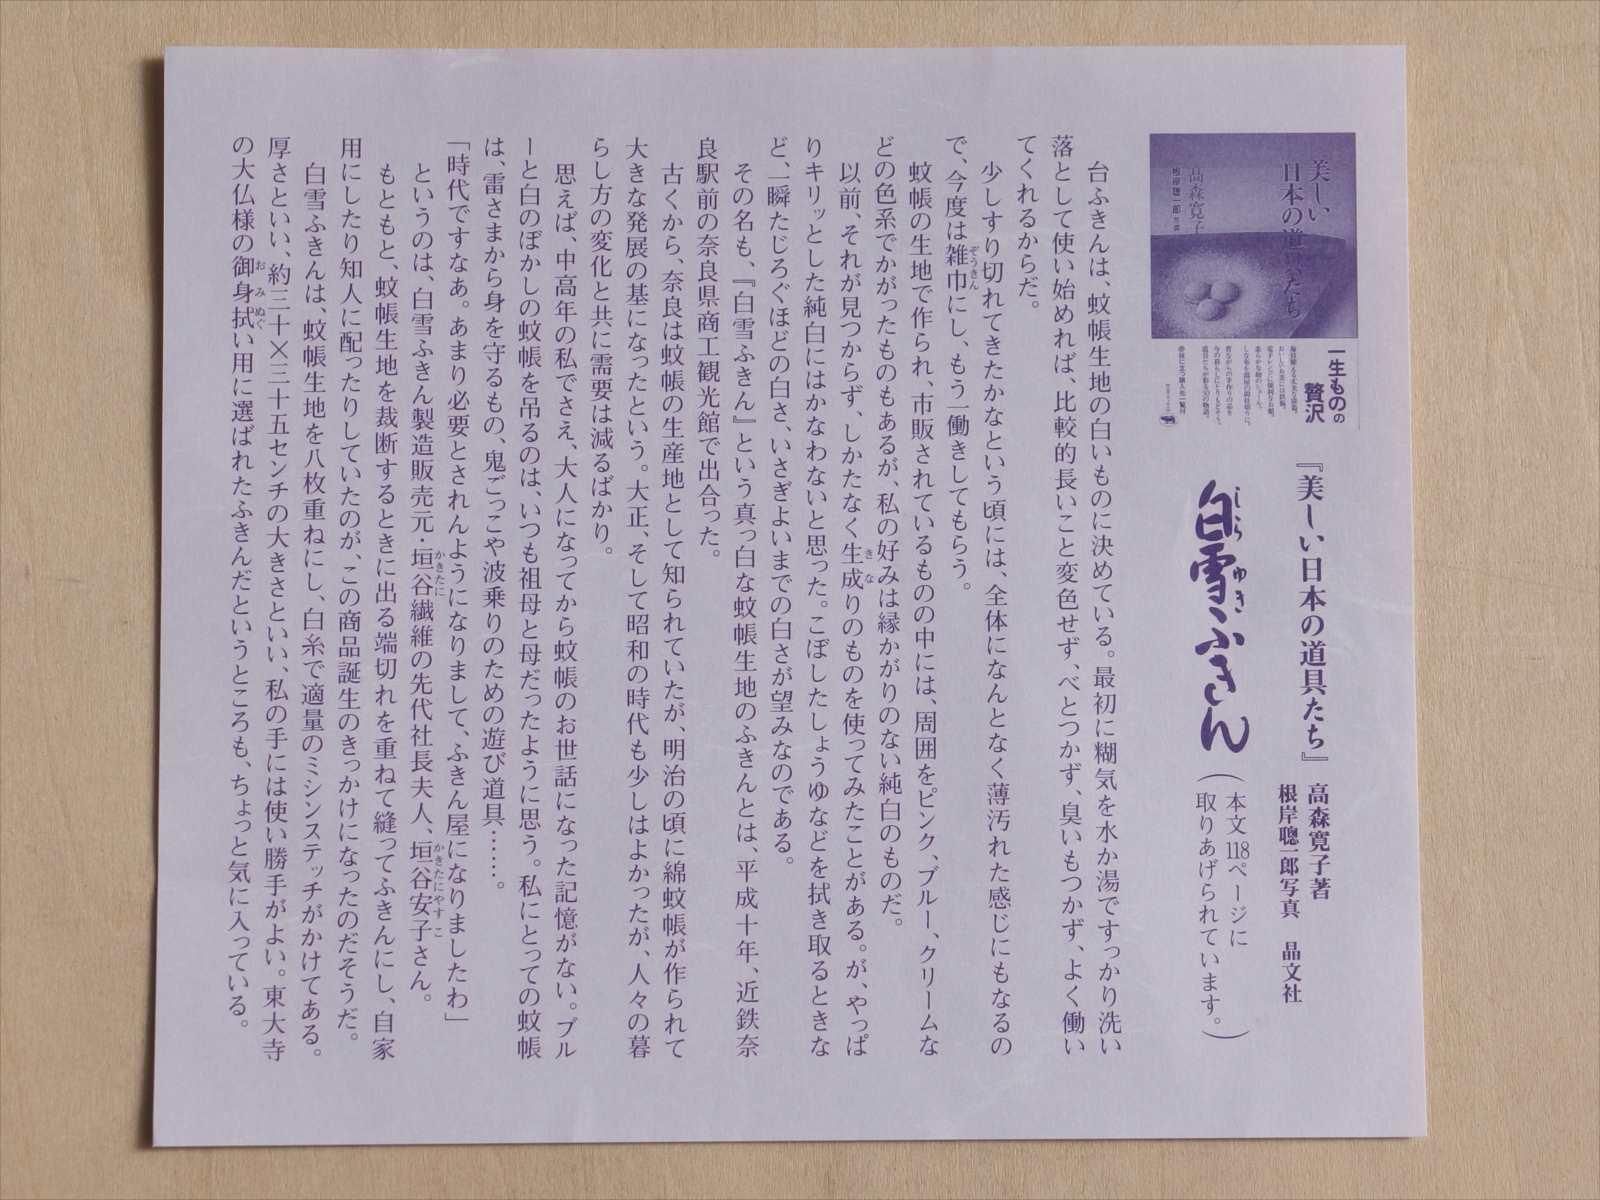 美しい
日本の道具たち
高森寛子
根岸聰一郎
一生ものの
贅沢
『美しい日本の道具たち』
高森寛子著
根岸聰一郎写真 晶文社
白雪ふきん
しらゆき
(本文118ページに
取りあげられています。)
台ふきんは、蚊帳生地の白いものに決めている。最初に糊気を水か湯ですっかり洗い
落として使い始めれば、比較的長いこと変色せず、べとつかず、臭いもつかず、よく働い
てくれるからだ。
少しすり切れてきたかなという頃には、全体になんとなく薄汚れた感じにもなるの
で、今度は雑巾にし、もう一働きしてもらう。
ぞうきん
蚊帳の生地で作られ、市販されているものの中には、周囲をピンク、ブルー、クリームな
どの色糸でかがったものもあるが、私の好みは縁かがりのない純白のものだ。
以前、それが見つからず、しかたなく生成りのものを使ってみたことがある。が、やっぱ
きな
りキリッとした純白にはかなわないと思った。こぼしたしょうゆなどを拭き取るときな
ど、一瞬たじろぐほどの白さ、いさぎよいまでの白さが望みなのである。
その名も、『白雪ふきん』という真っ白な蚊帳生地のふきんとは、平成十年、近鉄奈
良駅前の奈良県商工観光館で出合った。
古くから、奈良は蚊帳の生産地として知られていたが、明治の頃に綿蚊帳が作られて
大きな発展の基になったという。大正、そして昭和の時代も少しはよかったが、人々の暮
らし方の変化と共に需要は減るばかり。
思えば、中高年の私でさえ、大人になってから蚊帳のお世話になった記憶がない。ブル
ーと白のぼかしの蚊帳を吊るのは、いつも祖母と母だったように思う。私にとっての蚊帳
は、雷さまから身を守るもの、鬼ごっこや波乗りのための遊び道具……。
「時代ですなあ。あまり必要とされんようになりまして、ふきん屋になりましたわ」
というのは、白雪ふきん製造販売元・垣谷繊維の先代社長夫人、垣谷安子さん。
かきたに
かきたにやすこ
もともと、蚊帳生地を裁断するときに出る端切れを重ねて縫ってふきんにし、自家
用にしたり知人に配ったりしていたのが、この商品誕生のきっかけになったのだそうだ。
白雪ふきんは、蚊帳生地を八枚重ねにし、白糸で適量のミシンステッチがかけてある。
厚さといい、約三十×三十五センチの大きさといい、私の手には使い勝手がよい。東大寺
の大仏様の御身拭い用に選ばれたふきんだというところも、ちょっと気に入っている。
おみぬぐ